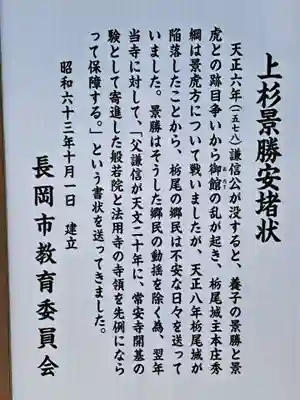 上杉景勝安堵状
天正六年(一五七八)謙信公が没すると、養子の景勝と景
虎との跡目争いから御館の乱が起き、栃尾城主本庄秀
綱は景虎方について戦いましたが、天正八年栃尾城が
陥落したことから、栃尾の郷民は不安な日々を送って
いました。景勝はそうした郷民の動揺を除く為、翌年
当寺に対して、「父謙信が天文二十年に、常安寺開基の
験として寄進した般若院と法用寺の寺領を先例になら
って保障する。」という書状を送ってきました。
昭和六十三年十月一日 建立
長岡市教育委員会